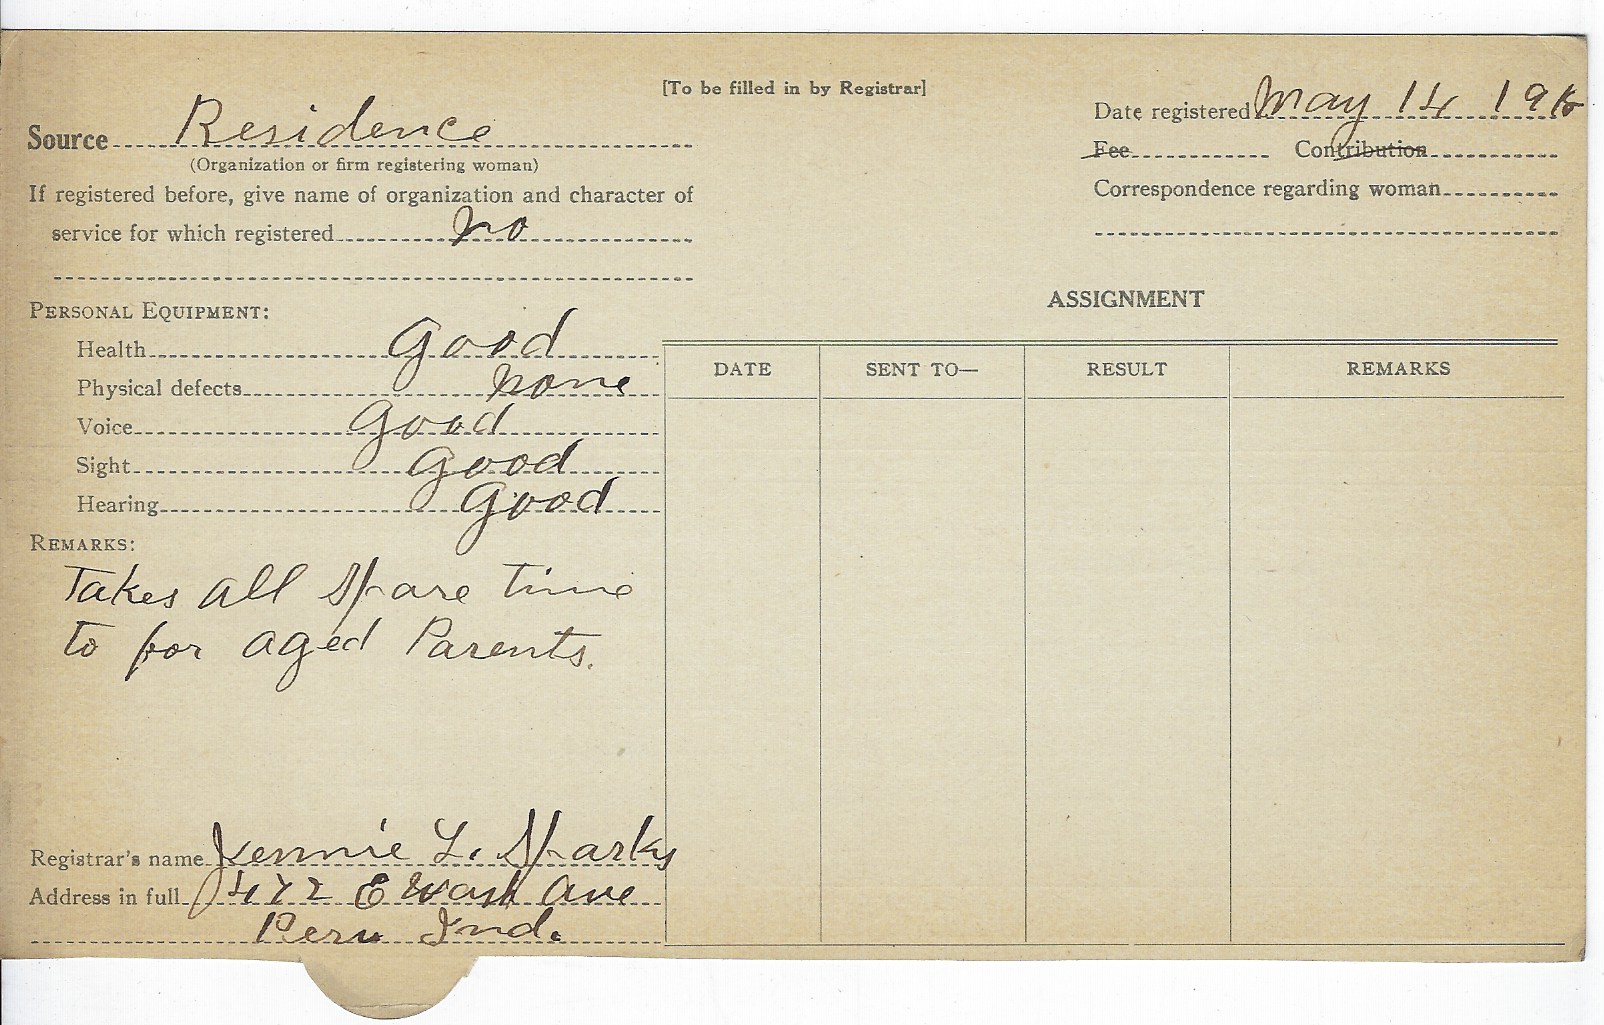 [To be filled in by Registrar]
Source Residence
(Organization or firm registering woman)
If registered before, give name of organization and character of
service for which registered no
Date registered May 14 1918
Fee Contribution
Correspondence regarding woman
PERSONAL EQUIPMENT:
Health good
Physical defects none
Voice good
Sight good
Hearing good
REMARKS:
Takes all spare time
to for aged Parents.
Registrar's name Jennie L. Sparks
Address in full 472 E Wash Ave
Peru Ind.
ASSIGNMENT
DATE SENT TO— RESULT REMARKS